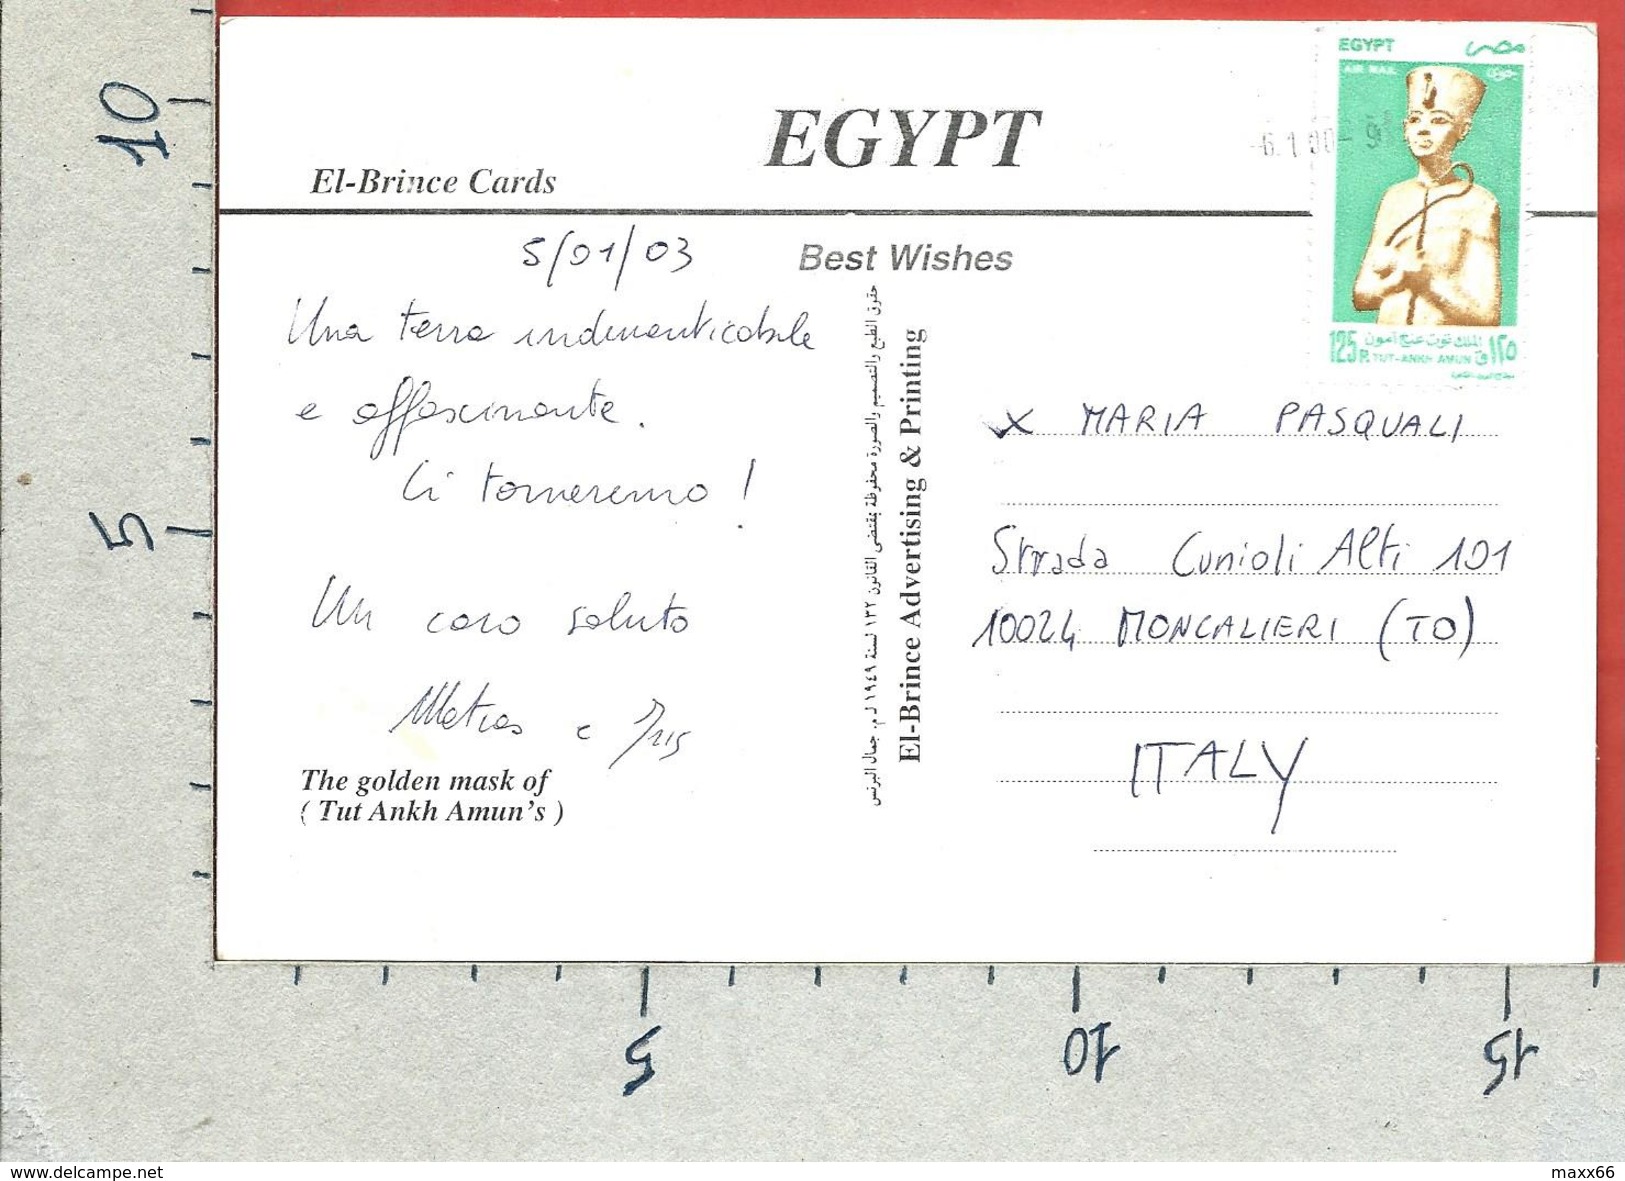 EGYPT
El-Brince Cards
EGYPT مصر
AIR MAIL
125 P. TUT-ANKH AMUN
الملك توت عنخ آمون ١٢٥
6.1.00-9
5/01/03
Best Wishes
Una terra indimenticabile
e affascinante.
Ci torneremo!
Un caro saluto
e Iris
The golden mask of
( Tut Ankh Amun's )
حقوق الطبع والتصميم والصورة محفوظة بمقتضى القانون ١٣٢ لسنة ١٩٤٩ ل.م. جمال البرنس
El-Brince Advertising & Printing
X MARIA PASQUALI
Strada Cunioli Alti 101
10024 MONCALIERI (TO)
ITALY
10
5
5
10
15
www.delcampe.net
maxx66